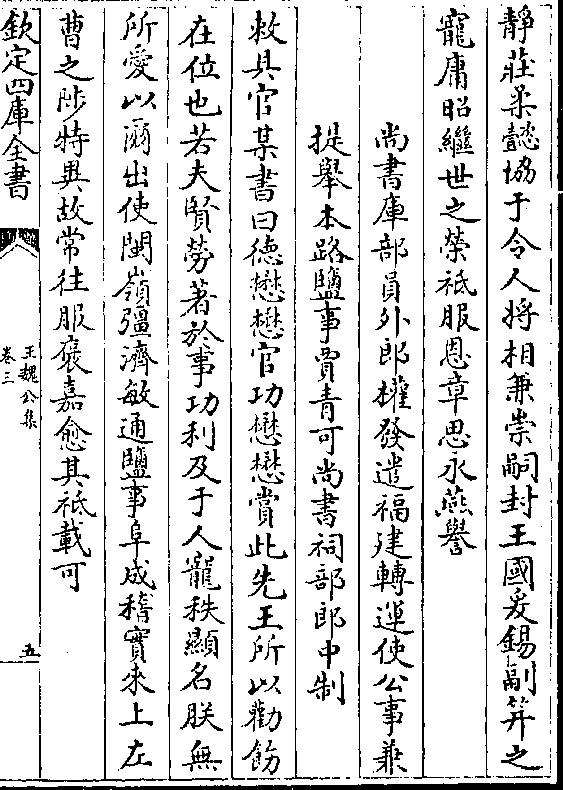 靜莊柔懿協于令人將相兼崇嗣封王國爰錫副筓之
寵庸昭繼世之榮祗服恩章思永燕譽
尚書庫部員外郎權發遣福建轉運使公事兼
提舉本路鹽事賈青可尚書祠部郎中制
敕具官某書曰德懋懋官功懋懋賞此先王所以勸飭
在位也若夫賢勞著於事功利及于人寵秩顯名朕無
所愛以爾出使閩嶺彊濟敏通鹽事阜成稽實來上左
曹之陟特異故常往服褒嘉愈其祗載可
欽定四庫全書
王魏公集
卷三
五